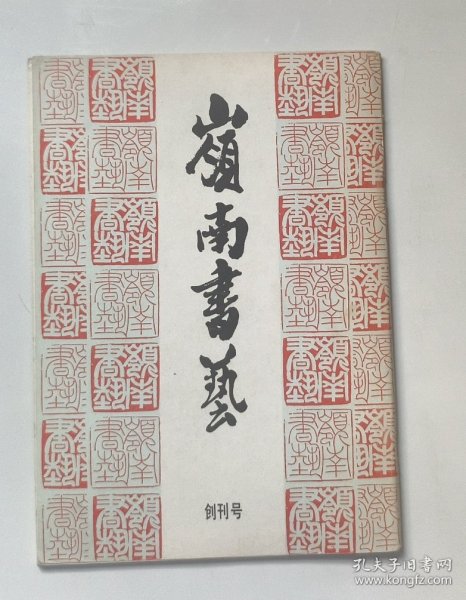 嶺南書藝
创刊号
嶺南書藝
孔夫子旧书网
www.kongfz.com